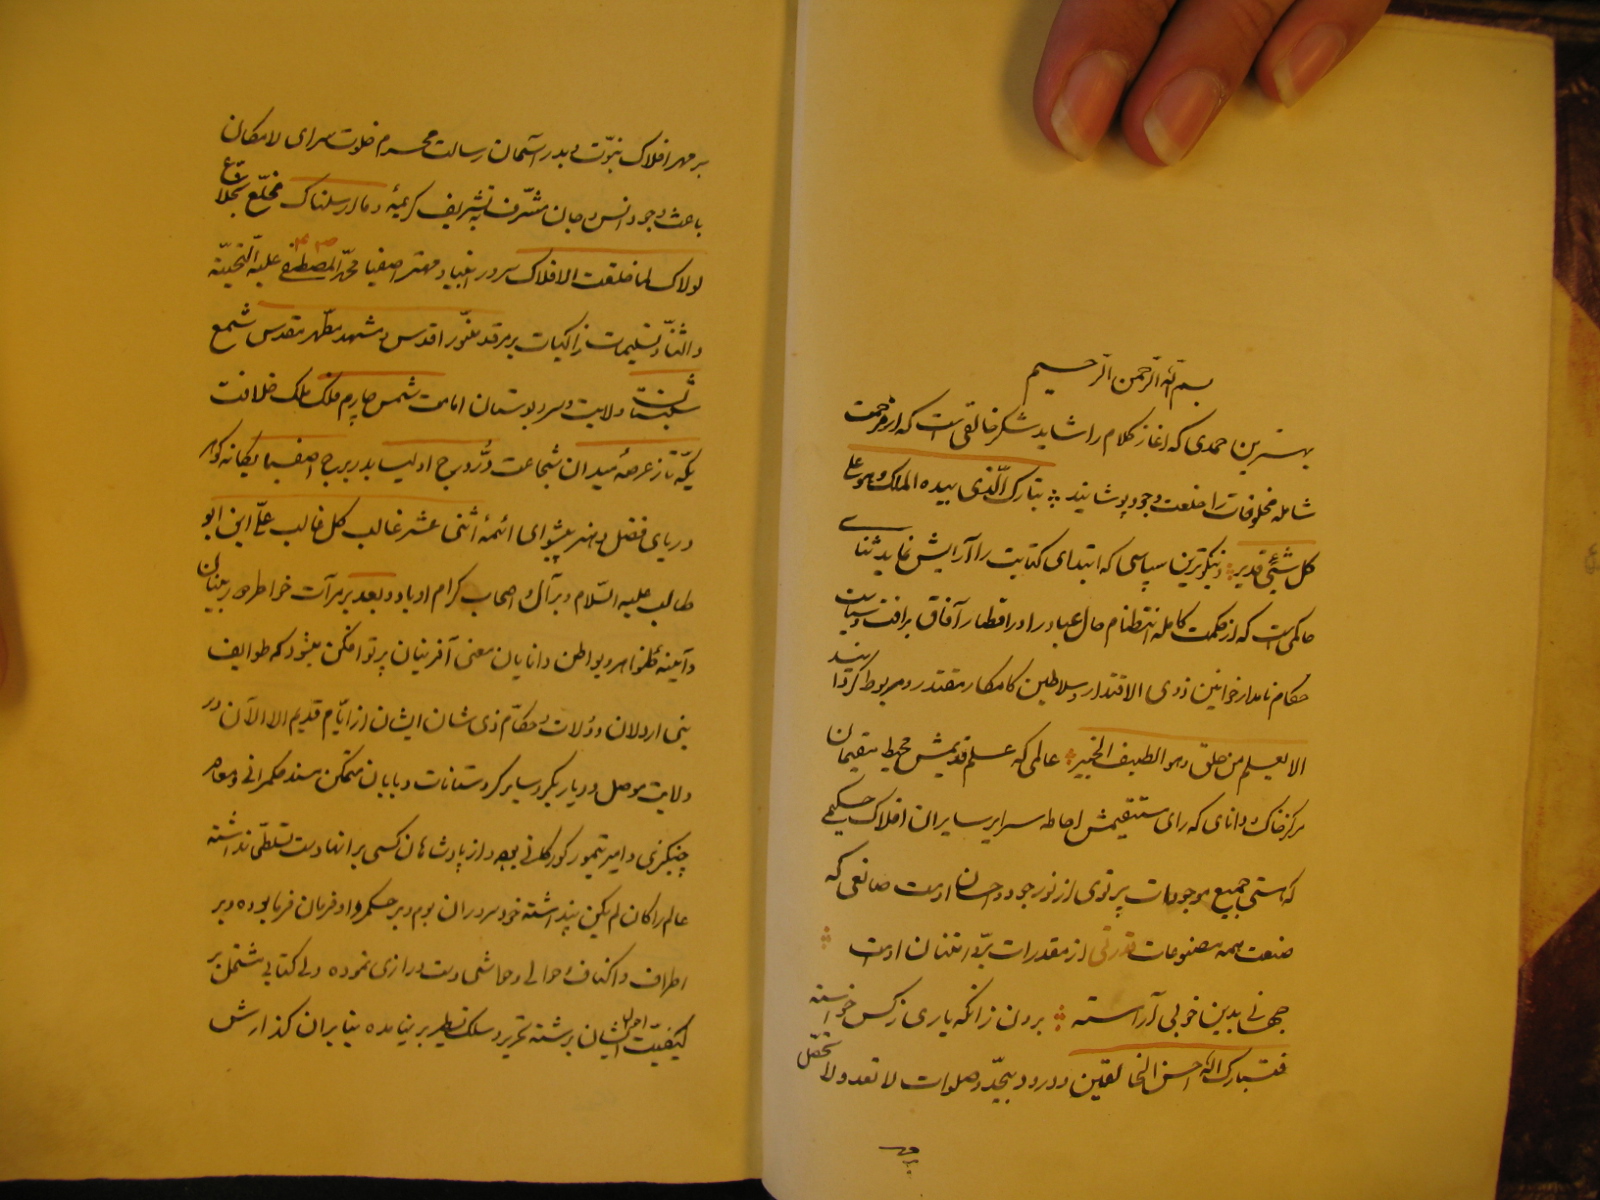 بسم الله الرحمن الرحیم
بهترین حمدی که آغاز کلام را شاید شکر خالقی است که از مرحمت
شامله مخلوقات را خلعت وجود پوشانید تبارک الذی بیده الملک و هو علی
کل شیء قدیر و نیکوترین سپاسی که ابتدای کتابت را آرایش نماید ثنای
حاکمی است که از حکمت کامله انتظام حال عباد را در اقطار آفاق برافت و سیاست
حکام نامدار خوانین ذوی الاقتدار و سلاطین کامکار مقتدر و مربوط گردانید
الا یعلم من خلق و هو اللطیف الخبیر عالمی که علم قدیمش محیط مقیمان
مرکز خاک و دانای که رای مستقیمش احاطه سرایر سایران افلاک حکیمی
که هستی جمیع موجودات پرتوی از نور جود و احسان اوست صانعی که
صنعت همه مصنوعات قدرتی از مقدرات بر و امتنان اوست
جهانی بدین خوبی آراسته برون زانکه یاری ز کس خواسته
فتبارک الله احسن الخالقین و درود بیحد و صلوات لا تعد و لا تحصی
بر مهر افلاک نبوت و بدر آسمان رسالت محرم خلوت سرای لامکان
باعث وجود انس و جان مشرف به تشریف کریمهٔ و ما ارسلناک مخلع بخلاع
لولاک لما خلقت الافلاک سرور انبیا و مهتر اصفیا محمد المصطفی علیه التحیة
و الثنا و تسلیمات زاکیات بر مرقد منور اقدس و مشهد مطهر مقدس شمع
شبستان ولایت و سرو بوستان امامت شمس چارم فلک ملک خلافت
یکه تاز عرصهٔ میدان شجاعت در درج اولیا بدر برج اصفیا یگانه گوهر
دریای فضل و هنر پیشوای ائمهٔ اثنی عشر غالب کل غالب علی ابن ابو
طالب علیه السلام و بر آل و اصحاب کرام او باد و بعد بر مرآت خواطر بینان
و آینه قلوب و بواطن دانایان معنی آفرینان پرتو افکن میشود که طوایف
بنی اردلان و ولات و حکام ذی شان ایشان از ایام قدیم الا الآن در
ولایت موصل و دیاربکر و سایر کردستانات و بابان متمکن مسند حکمرانی و معاصر
چنگیزی و امیر تیمور کورکانی بوده و از پادشاهان کسی بر آنها دست تسلطی نداشته
عالم را کان لم یکن پنداشته خود سر در آن بوم و بر حکمروا و فرمان فرما بوده و بر
اطراف و اکناف و حوالی و حواشی دست درازی نموده ولی کتابی مشتمل بر
کیفیت احوال ایشان برشته تحریر و سلک تسطیر بر نیامده بنابر آن گذارش